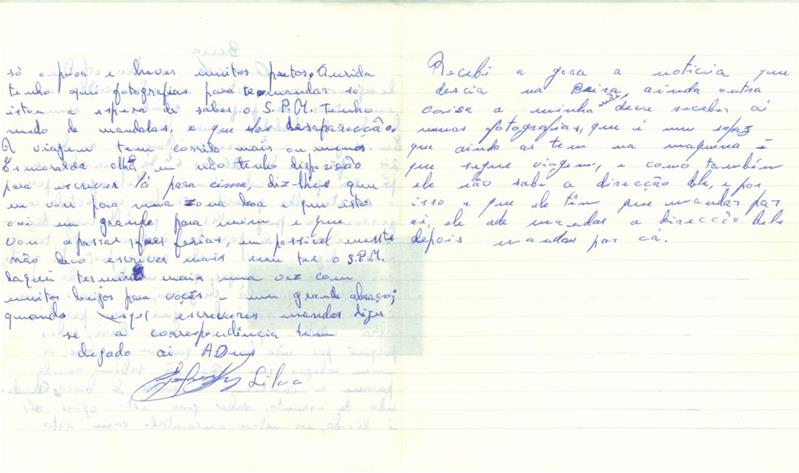 só o peior e haver muitos pretos, Querida
tenho aqui fotografias para te mandar só
estou a espera de saber o S.P.M. Tenho
medo de mandalas, e que se desaparecção.
A viagem tem corrido mais ou menos.
Esmeralda olha eu não tenho disposição
para escrever lá para cima, diz-lhes que
eu vou para uma zona boa e que isto
vai em grande para mim e que
vou a passar ferias, em possivel
não devo escrever mais sem ter o S.P.M.
daqui termino mais uma vez com
muitos beijos para vocês e um grande abraço;
quando escreveres mandas dizer
se a correspondência tem
chegado ai ADeus
Silva
Recebi a gora a noticia que
descia na Beira, ainda outra
coisa a minha deve receber ai
umas fotografias, que é um rapaz
que ainda as tem na maquina e
que segue viagem, e como também
ele não sabe a direcção dele, e por
isso e que ele têm que mandar par
ai, ele ade mandar a direcção dele
depois mandas par cá.